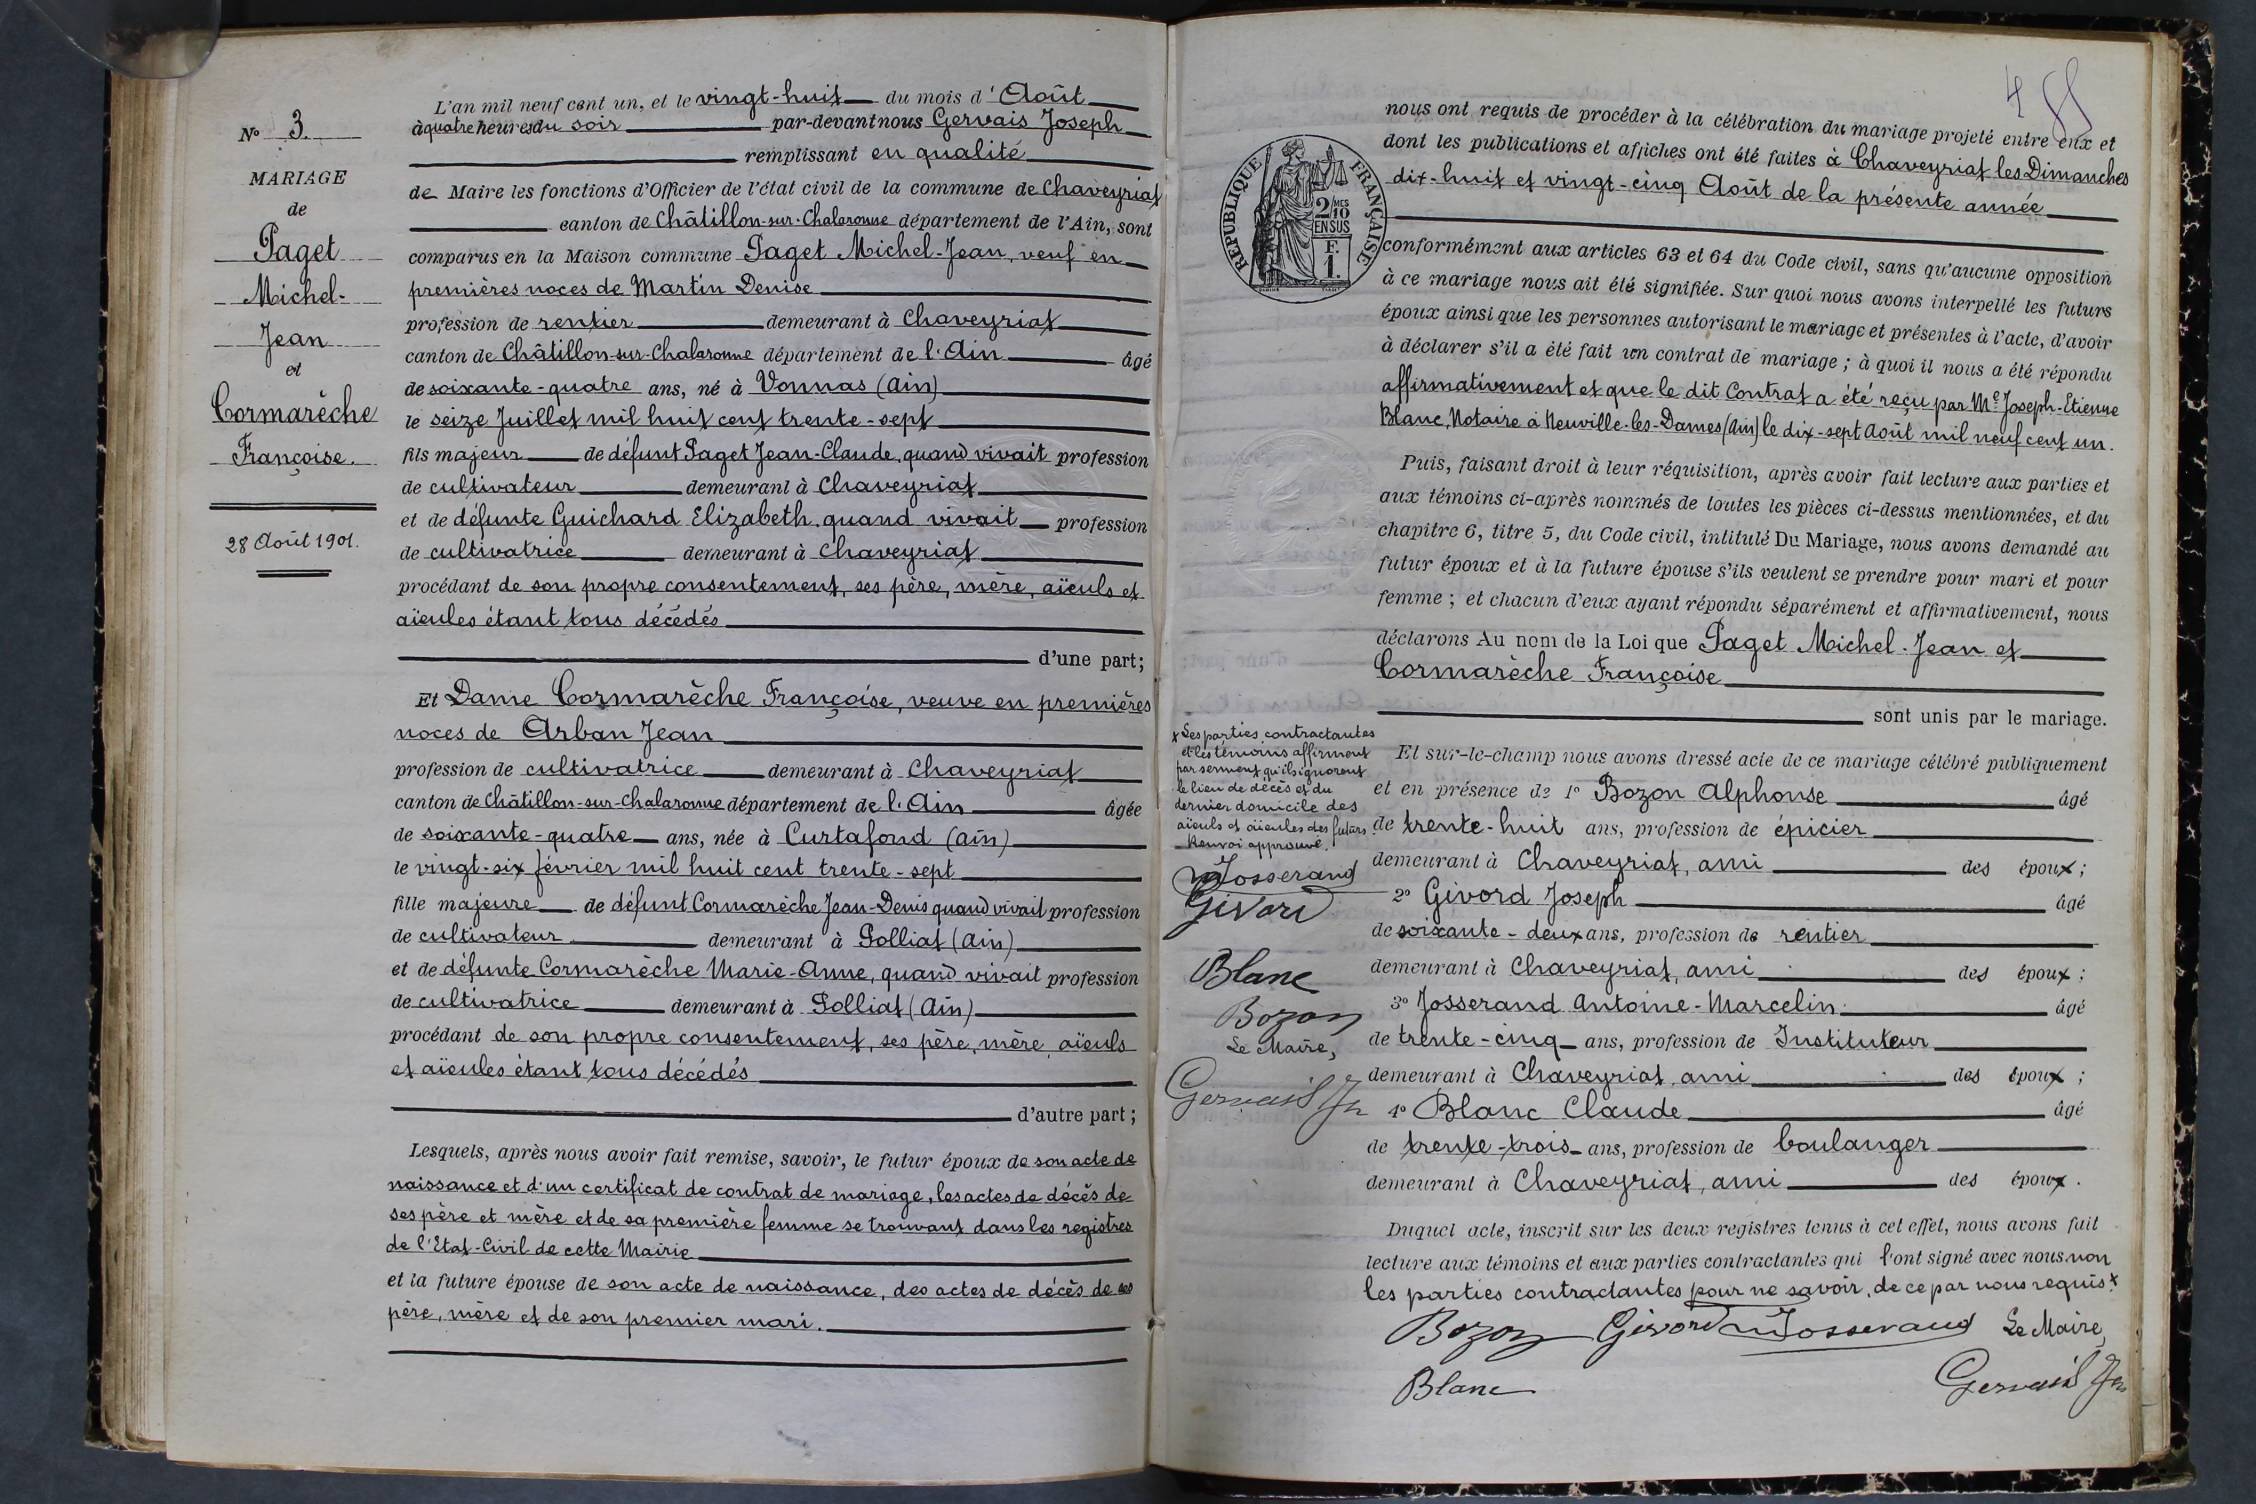 N° 3.
MARIAGE
de
Paget
Michel-
Jean
et
Cormarèche
Françoise.
28 Août 1901.
L'an mil neuf cent un, et le vingt-huit du mois d'Août
à quatre heures du soir par-devant nous Gervais Joseph
remplissant en qualité
de Maire les fonctions d'Officier de l'état civil de la commune de Chaveyriat
canton de Châtillon-sur-Chalaronne département de l'Ain, sont
comparus en la Maison commune Paget Michel-Jean, veuf en
premières noces de Martin Denise
profession de rentier demeurant à Chaveyriat
canton de Châtillon-sur-Chalaronne département de l'Ain âgé
de soixante-quatre ans, né à Vonnas (Ain)
le seize Juillet mil huit cent trente-sept
fils majeur de défunt Paget Jean-Claude, quand vivait profession
de cultivateur demeurant à Chaveyriat
et de défunte Guichard Elizabeth, quand vivait profession
de cultivatrice demeurant à Chaveyriat
procédant de son propre consentement, ses père, mère, aïeuls et
aïeules étant tous décédés
d'une part;
Et Dame Cormarèche Françoise, veuve en premières
noces de Arban Jean
profession de cultivatrice demeurant à Chaveyriat
canton de Châtillon-sur-Chalaronne département de l'Ain âgée
de soixante-quatre ans, née à Curtafond (Ain)
le vingt-six février mil huit cent trente-sept
fille majeure de défunt Cormarèche Jean-Denis quand vivait profession
de cultivateur demeurant à Polliat (Ain)
et de défunte Cormarèche Marie-Anne, quand vivait profession
de cultivatrice demeurant à Polliat (Ain)
procédant de son propre consentement, ses père, mère, aïeuls
et aïeules étant tous décédés
d'autre part;
Lesquels, après nous avoir fait remise, savoir, le futur époux de son acte de
naissance et d'un certificat de contrat de mariage, les actes de décès de
ses père et mère et de sa première femme se trouvant dans les registres
de l'Etat-Civil de cette Mairie
et la future épouse de son acte de naissance, des actes de décès de ses
père, mère et de son premier mari.
4
REPUBLIQUE FRANÇAISE
2/10 MES
EN SUS
F.
1.
nous ont requis de procéder à la célébration du mariage projeté entre eux et
dont les publications et affiches ont été faites à Chaveyriat les Dimanches
dix-huit et vingt-cinq Août de la présente année
conformément aux articles 63 et 64 du Code civil, sans qu'aucune opposition
à ce mariage nous ait été signifiée. Sur quoi nous avons interpellé les futurs
époux ainsi que les personnes autorisant le mariage et présentes à l'acte, d'avoir
à déclarer s'il a été fait un contrat de mariage; à quoi il nous a été répondu
affirmativement et que le dit Contrat a été reçu par Me Joseph-Etienne
Blanc, Notaire à Neuville-les-Dames (Ain) le dix-sept Août mil neuf cent un.
Puis, faisant droit à leur réquisition, après avoir fait lecture aux parties et
aux témoins ci-après nommés de toutes les pièces ci-dessus mentionnées, et du
chapitre 6, titre 5, du Code civil, intitulé Du Mariage, nous avons demandé au
futur époux et à la future épouse s'ils veulent se prendre pour mari et pour
femme; et chacun d'eux ayant répondu séparément et affirmativement, nous
déclarons Au nom de la Loi que Paget Michel-Jean et
Cormarèche Françoise
sont unis par le mariage.
Et sur-le-champ nous avons dressé acte de ce mariage célébré publiquement
et en présence de 1° Bozon Alphonse âgé
de trente-huit ans, profession de épicier
demeurant à Chaveyriat, ami des époux;
2° Givord Joseph âgé
de soixante-deux ans, profession de rentier
demeurant à Chaveyriat, ami des époux;
3° Josserand Antoine-Marcelin âgé
de trente-cinq ans, profession de Instituteur
demeurant à Chaveyriat, ami des époux;
4° Blanc Claude âgé
de trente-trois ans, profession de boulanger
demeurant à Chaveyriat, ami des époux.
Duquel acte, inscrit sur les deux registres tenus à cet effet, nous avons fait
lecture aux témoins et aux parties contractantes qui l'ont signé avec nous non
les parties contractantes pour ne savoir, de ce par nous requis x
Bozon Givord Josserand Le Maire,
Blanc Gervais Jh
x Les parties contractantes
et les témoins affirment
par serment qu'ils ignorent
le lieu de décès et du
dernier domicile des
aïeuls et aïeules des futurs.
Renvoi approuvé.
Josserand
Givord
Blanc
Bozon
Le Maire,
Gervais Jh